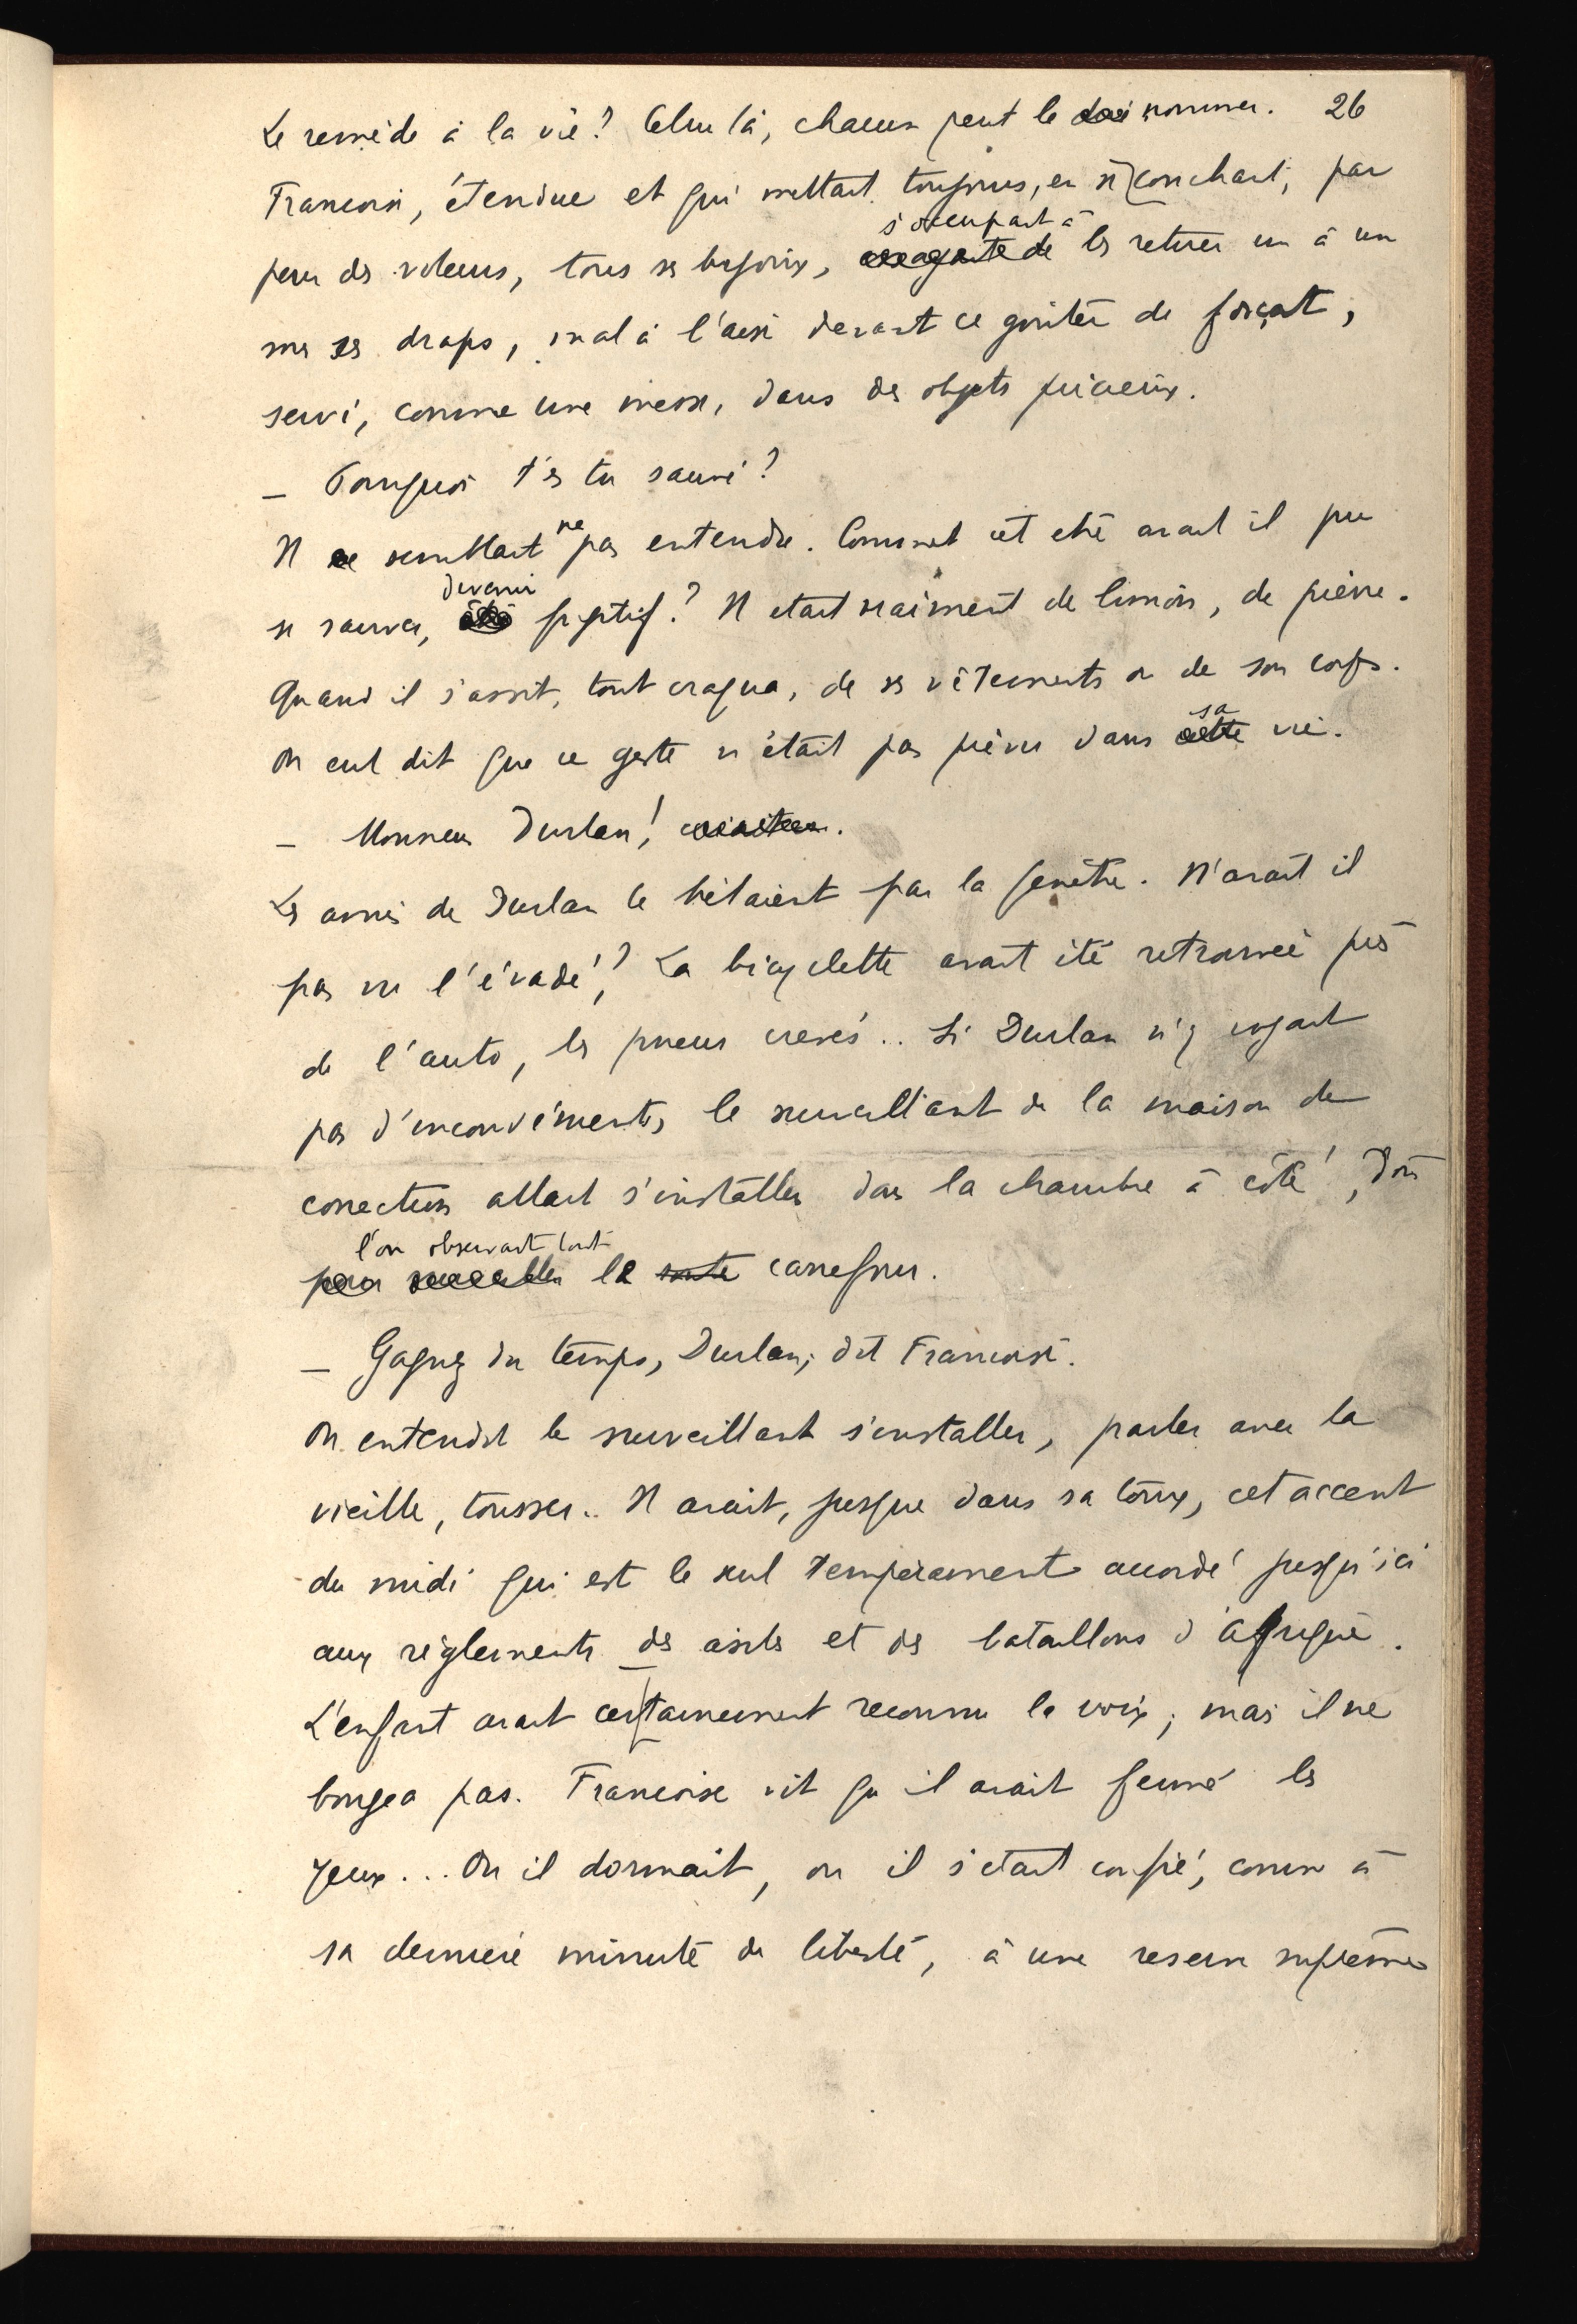 Le remède à la vie? Celui là, chacun peut le nommer. 26
Francoise, étendue et qui mettait toujours, en se couchant, par
s'occupait à
peur des voleurs, tous ses bijoux, de les retirer un à un
sous ses draps, mal à l'aise devant ce goûter de forçat,
servi, comme une messe, dans des objets précieux.
— Pourquoi t'es tu sauvé?
ne
Il semblait pas entendre. Comment cet etre avait il pu
devenir
se sauver, été fugitif? Il etait vraiment de limon, de pierre.
Quand il s'assit, tout craqua, de ses vêtements ou de son corps.
sa
On eut dit que ce geste n'était pas prévu dans cette vie.
— Monsieur Durlan!
Les amis de Durlan le hélaient par la fenêtre. N'avait il
pas vu l'évadé? La bicyclette avait été retrouvée près
de l'auto, les pneus crevés.. Si Durlan n'y voyait
pas d'inconvénients, le surveillant de la maison de
correction allait s'installer dans la chambre à côté, d'où
l'on observait tout
pour surveiller le carrefour.
— Gagnez du temps, Durlan, dit Francoise.
On entendit le surveillant s'installer, parler avec la
vieille, tousser.. Il avait, jusque dans sa toux, cet accent
du midi qui est le seul tempérament accordé jusqu'ici
aux règlements des asiles et des bataillons d'Afrique.
L'enfant avait certainement reconnu la voix; mais il ne
bougea pas. Francoise vit qu'il avait fermé les
yeux... Ou il dormait, ou il s'etait confié, comme à
sa derniere minute de liberté, à une reserve suprême